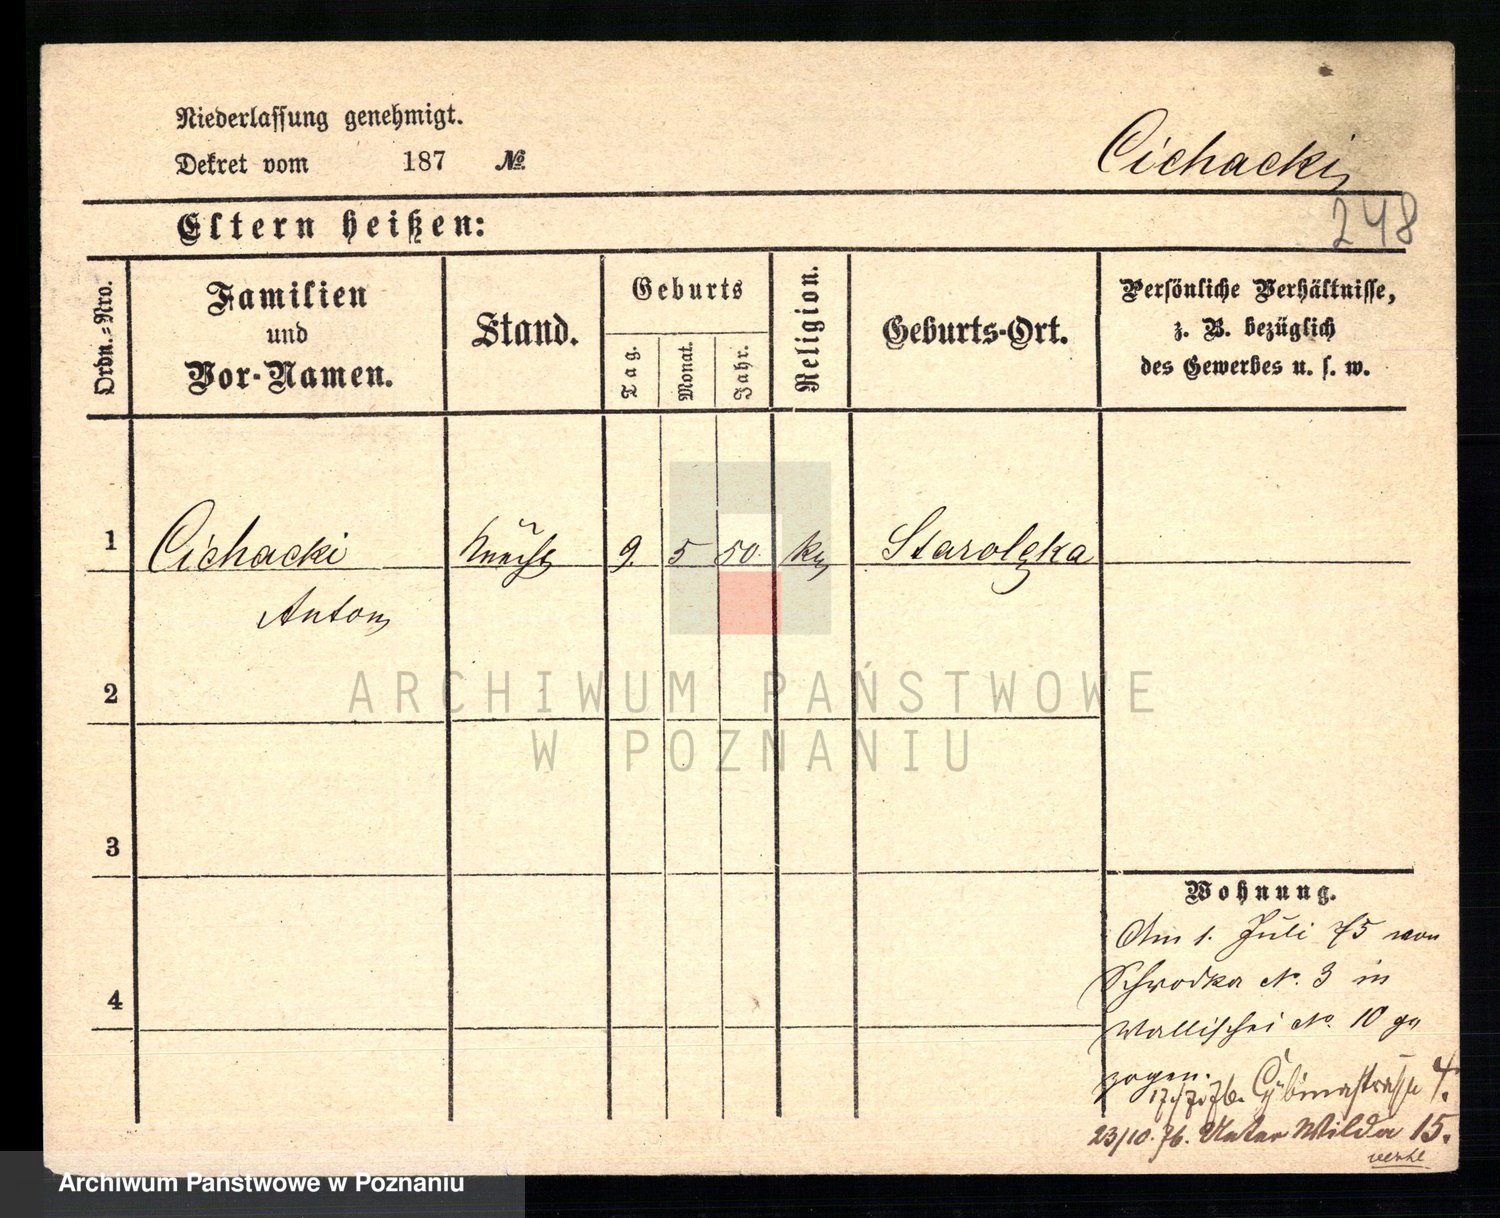 Niederlassung genehmigt.
Dekret vom 187 №
Cichacki
248
Eltern heißen:
Ordn.=Nro.
Familien
und
Vor-Namen.
Stand.
Geburts
Tag.
Monat.
Jahr.
Religion.
Geburts-Ort.
Persönliche Verhältnisse,
z. B. bezüglich
des Gewerbes u. s. w.
1 Cichacki Knecht 9. 5 50. kt Starolęka
Anton
2
3
4
Wohnung.
Am 1. Juli 75 von
Schrodka No. 3 in
Wallischei No. 10 ge
zogen.
17./7. 76. 4.
23/10. 76. Unter Wilda 15.
ARCHIWUM PAŃSTWOWE
W POZNANIU
Archiwum Państwowe w Poznaniu